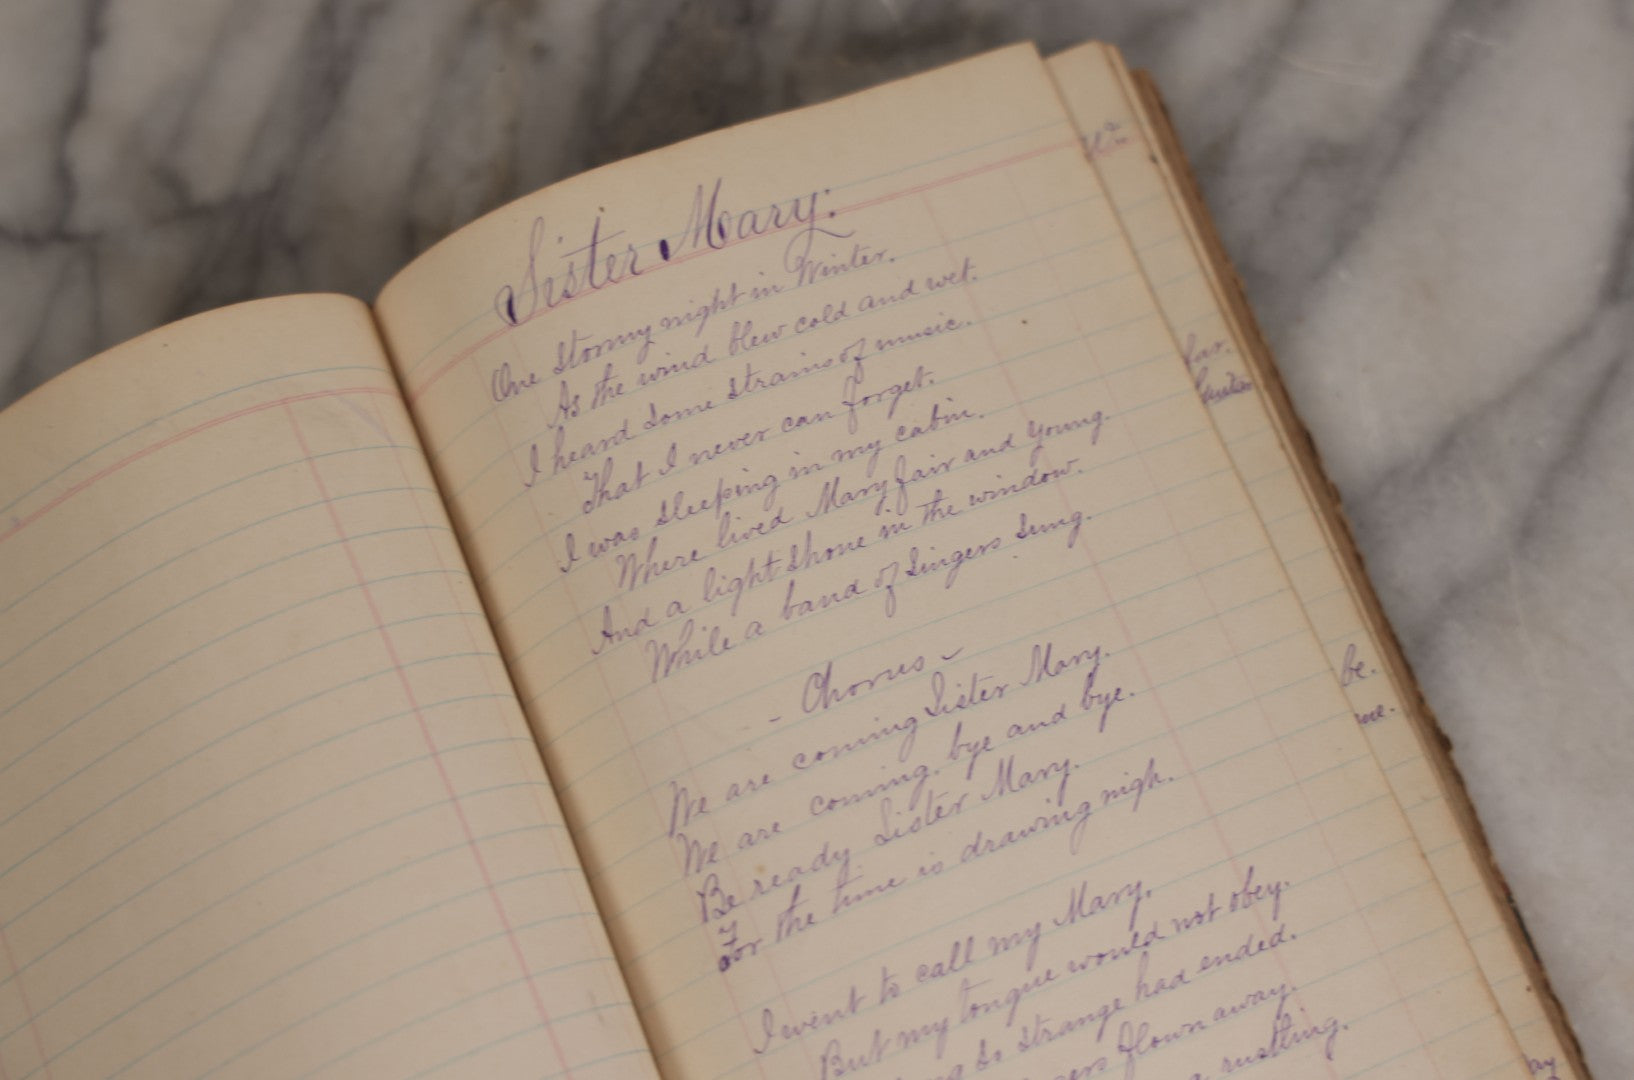 Sister Mary:
One Stormy night in Winter.
As the wind blew cold and wet.
I heard some strains of music.
That I never can forget.
I was sleeping in my cabin.
Where lived Mary fair and young.
And a light shone in the window.
While a band of singers sung.
- Chorus -
We are coming Sister Mary.
We are coming. bye and bye.
Be ready Sister Mary.
For the time is drawing nigh.
I went to call my Mary.
But my tongue would not obey.
so strange had ended.
flown away.
a rustling.
far.
be.
me.
ay